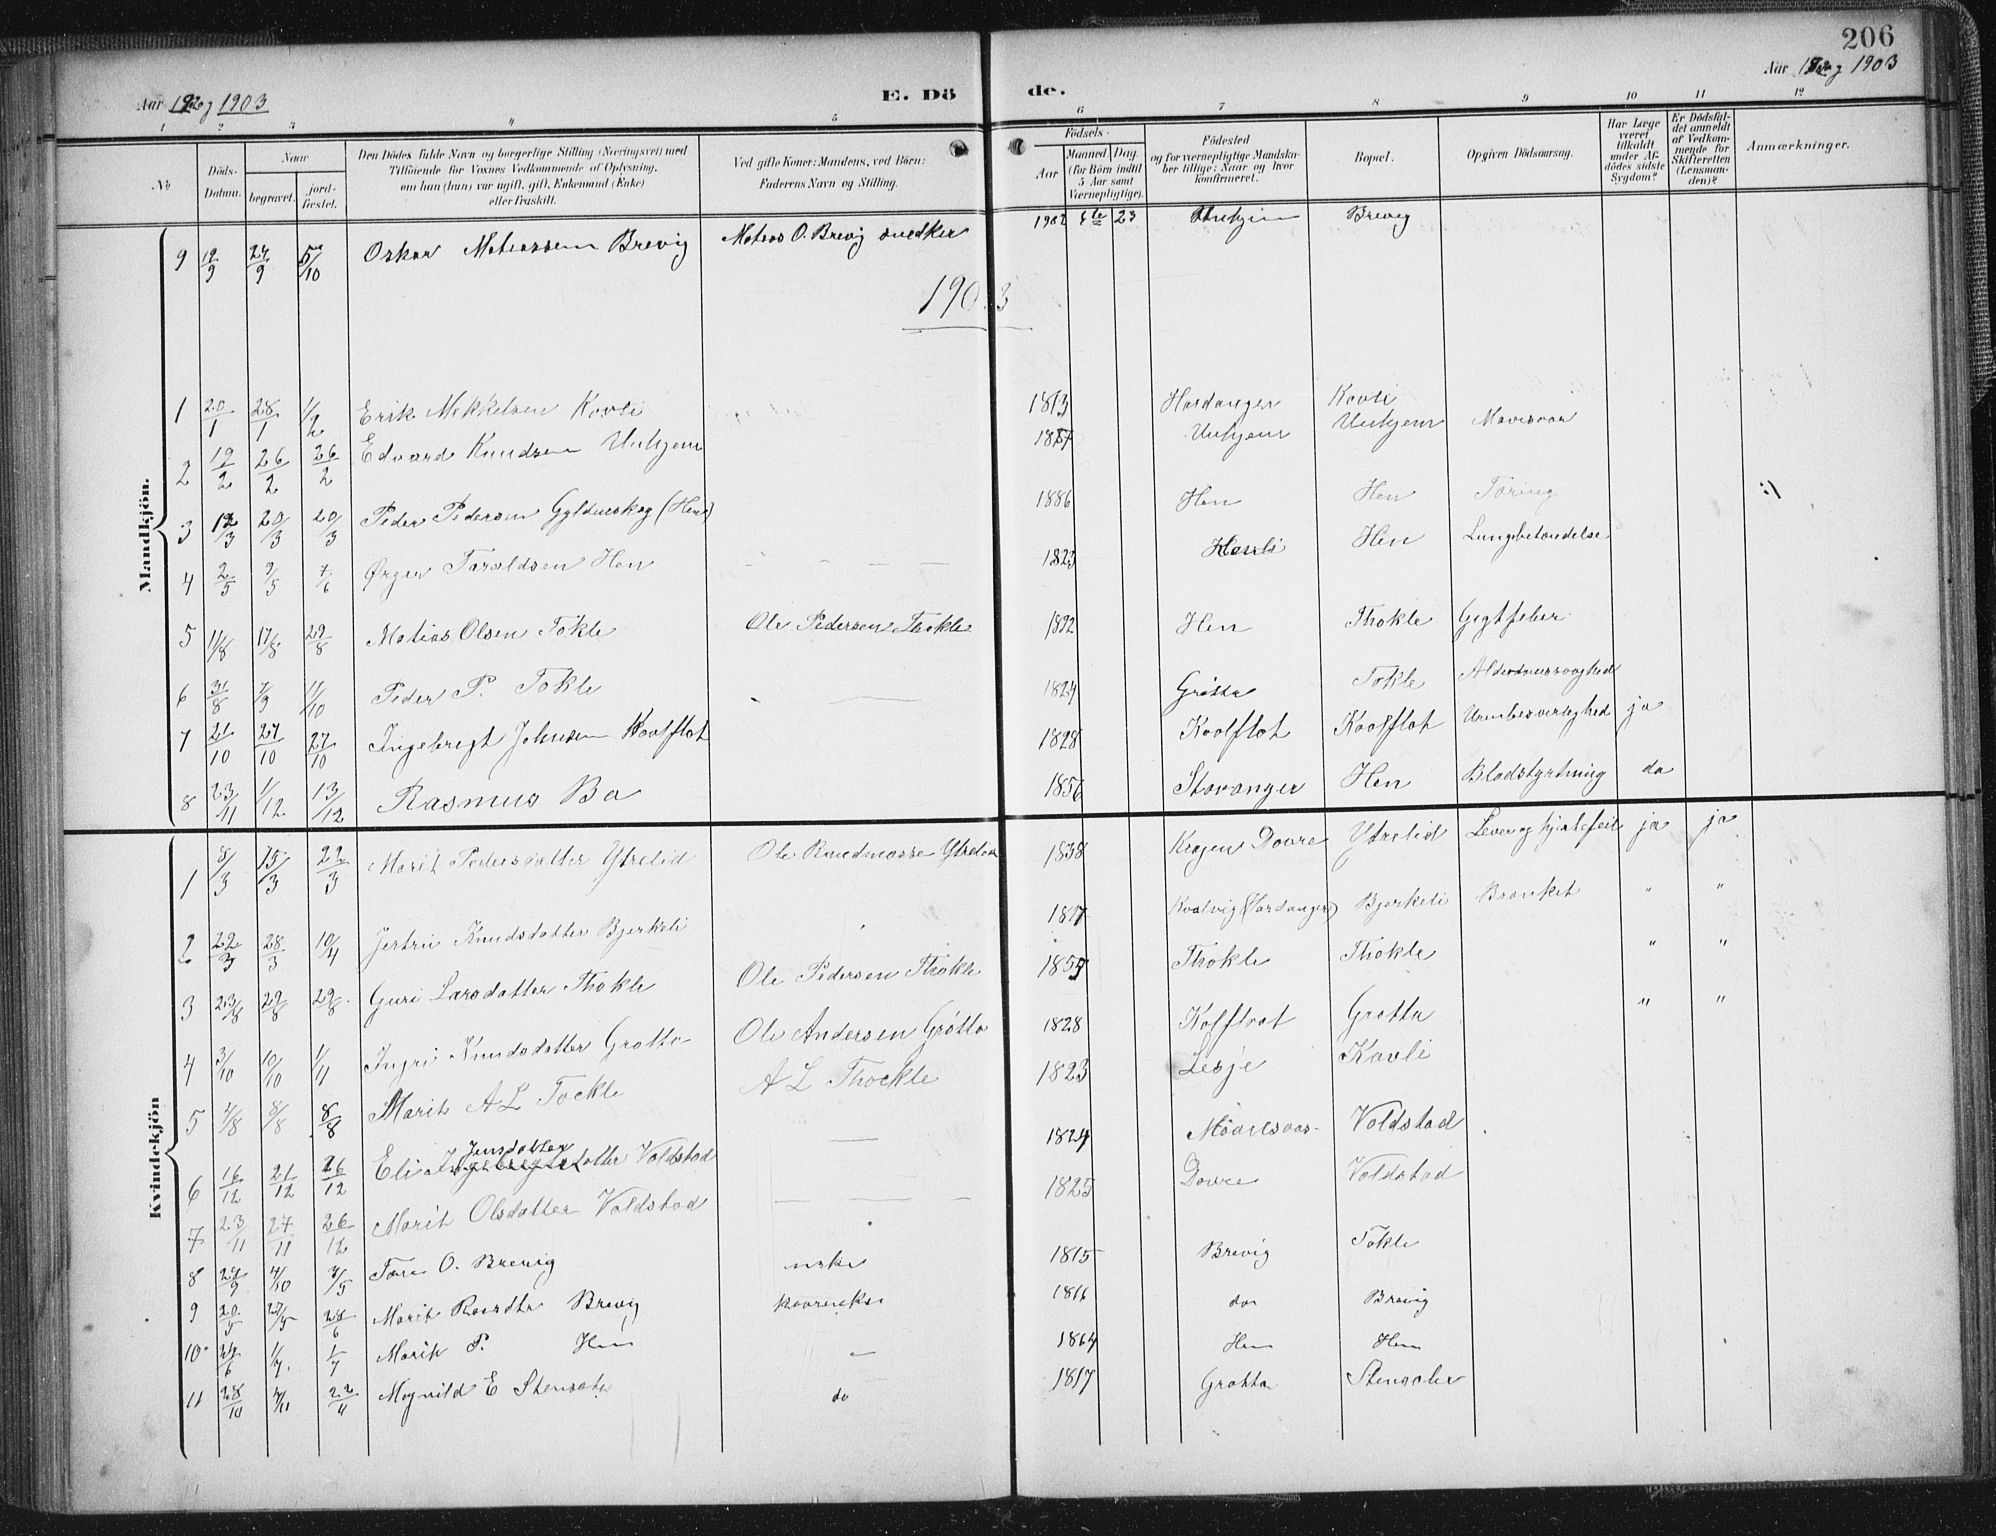 206
Aar 1902 og 1903
E. Dö de.
Aar 1902 og 1903
1 2 3 4 5 6 7 8 9 10 11 12
No
Döds-Datum.
Naar
begravet.
jord-fæstet.
Den Dödes fulde Navn og borgerlige Stilling (Næringsvei) med
Tilföiende for Voxnes Vedkommende af Oplysning,
om han (hun) var ugift, gift, Enkemand (Enke)
eller fraskilt.
Ved gifte Koner: Mandens, ved Börn:
Faderens Navn og Stilling.
Födsels-
Aar
Maaned. Dag.
(for Börn indtil
5 Aar samt
Værnepligtige).
Födested
og for værnepligtige Mandska-
ber tillige: Naar og hvor
konfirmeret.
Bopæl.
Opgiven Dödsaarsag.
Har Læge
været
tilkaldt
under Af-
dödes sidste
Sygdom?
Er Dödsfal-
det anmeldt
af Vedkom-
mende for
Skifteretten
(Lensman-
den)?
Anmærkninger.
Mandkjön.
9 19/9 24/9 5/10 Oskar Matiassen Brevig Matias O. Brevig snedker 1902 23 Unhjem Brevig
1903
1 20/1 28/1 1/2 Erik Mekkelsen Kavli 1813 Hardanger Kavli
2 19/2 26/2 26/2 Edvard Knudsen Unhjem Unhjem Unhjem Mavesaar
3 12/3 20/3 20/3 Peder Pedersen Gyldenskog (Hen) 1886 Hen Hen Tæring
4 2/5 9/5 7/6 Ørger Taraldsen Hen 1823 Hen Lungebetændelse
5 11/8 17/8 29/8 Matias Olsen Tokle Ole Pedersen Thokle 1892 Hen Thokle Gigtfeber
6 31/8 7/9 11/10 Peder P. Tokle 1824 Grøtta Tokle Alderdomssvaghed
7 21/10 27/10 27/10 Ingebregt Johnsen Kvolflot 1828 Koolflot Koolflot ja
8 23/11 1/12 13/12 Rasmus Bo 1856 Stavanger Hen Blodstyrtning do
Kvindekjön
1 8/3 15/3 22/3 Marit Pedersdatter Ytrelid Ole 1838 Dovre Ytrelid ja ja
2 22/3 28/3 10/4 Knudsdatter Bjerkeli (Hardanger) Bjerkeli Bronket " "
3 23/8 29/8 29/8 Guri Larsdatter Thokle Ole Pedersen Thokle 1855 Thokle Thokle " "
4 3/10 10/10 1/11 Ingri Knudsdatter Grotta Ole Andersen Grötta 1828 Kolflot Grotta " "
5 4/8 8/8 8/8 Marit A L Tockle A L Thockle 1823 Lesje Kavli
Jensdatter
6 16/12 21/12 26/12 Eli Ingebregtsdatter Voldstad 1824 Voldstad
7 23/11 27/11 26/12 Marit Olsdatter Voldstad 1825 Dovre Voldstad
8 29/9 4/10 3/5 O. Brevig 1815 Brevig Tokle
9 20/5 28/6 Marit Brevig 1816 do Brevig
10 24/6 1/7 1/7 Marit P. Hen 1864 Hen Hen
11 28/10 4/11 22/11 Magnild E do 1817 Grotta